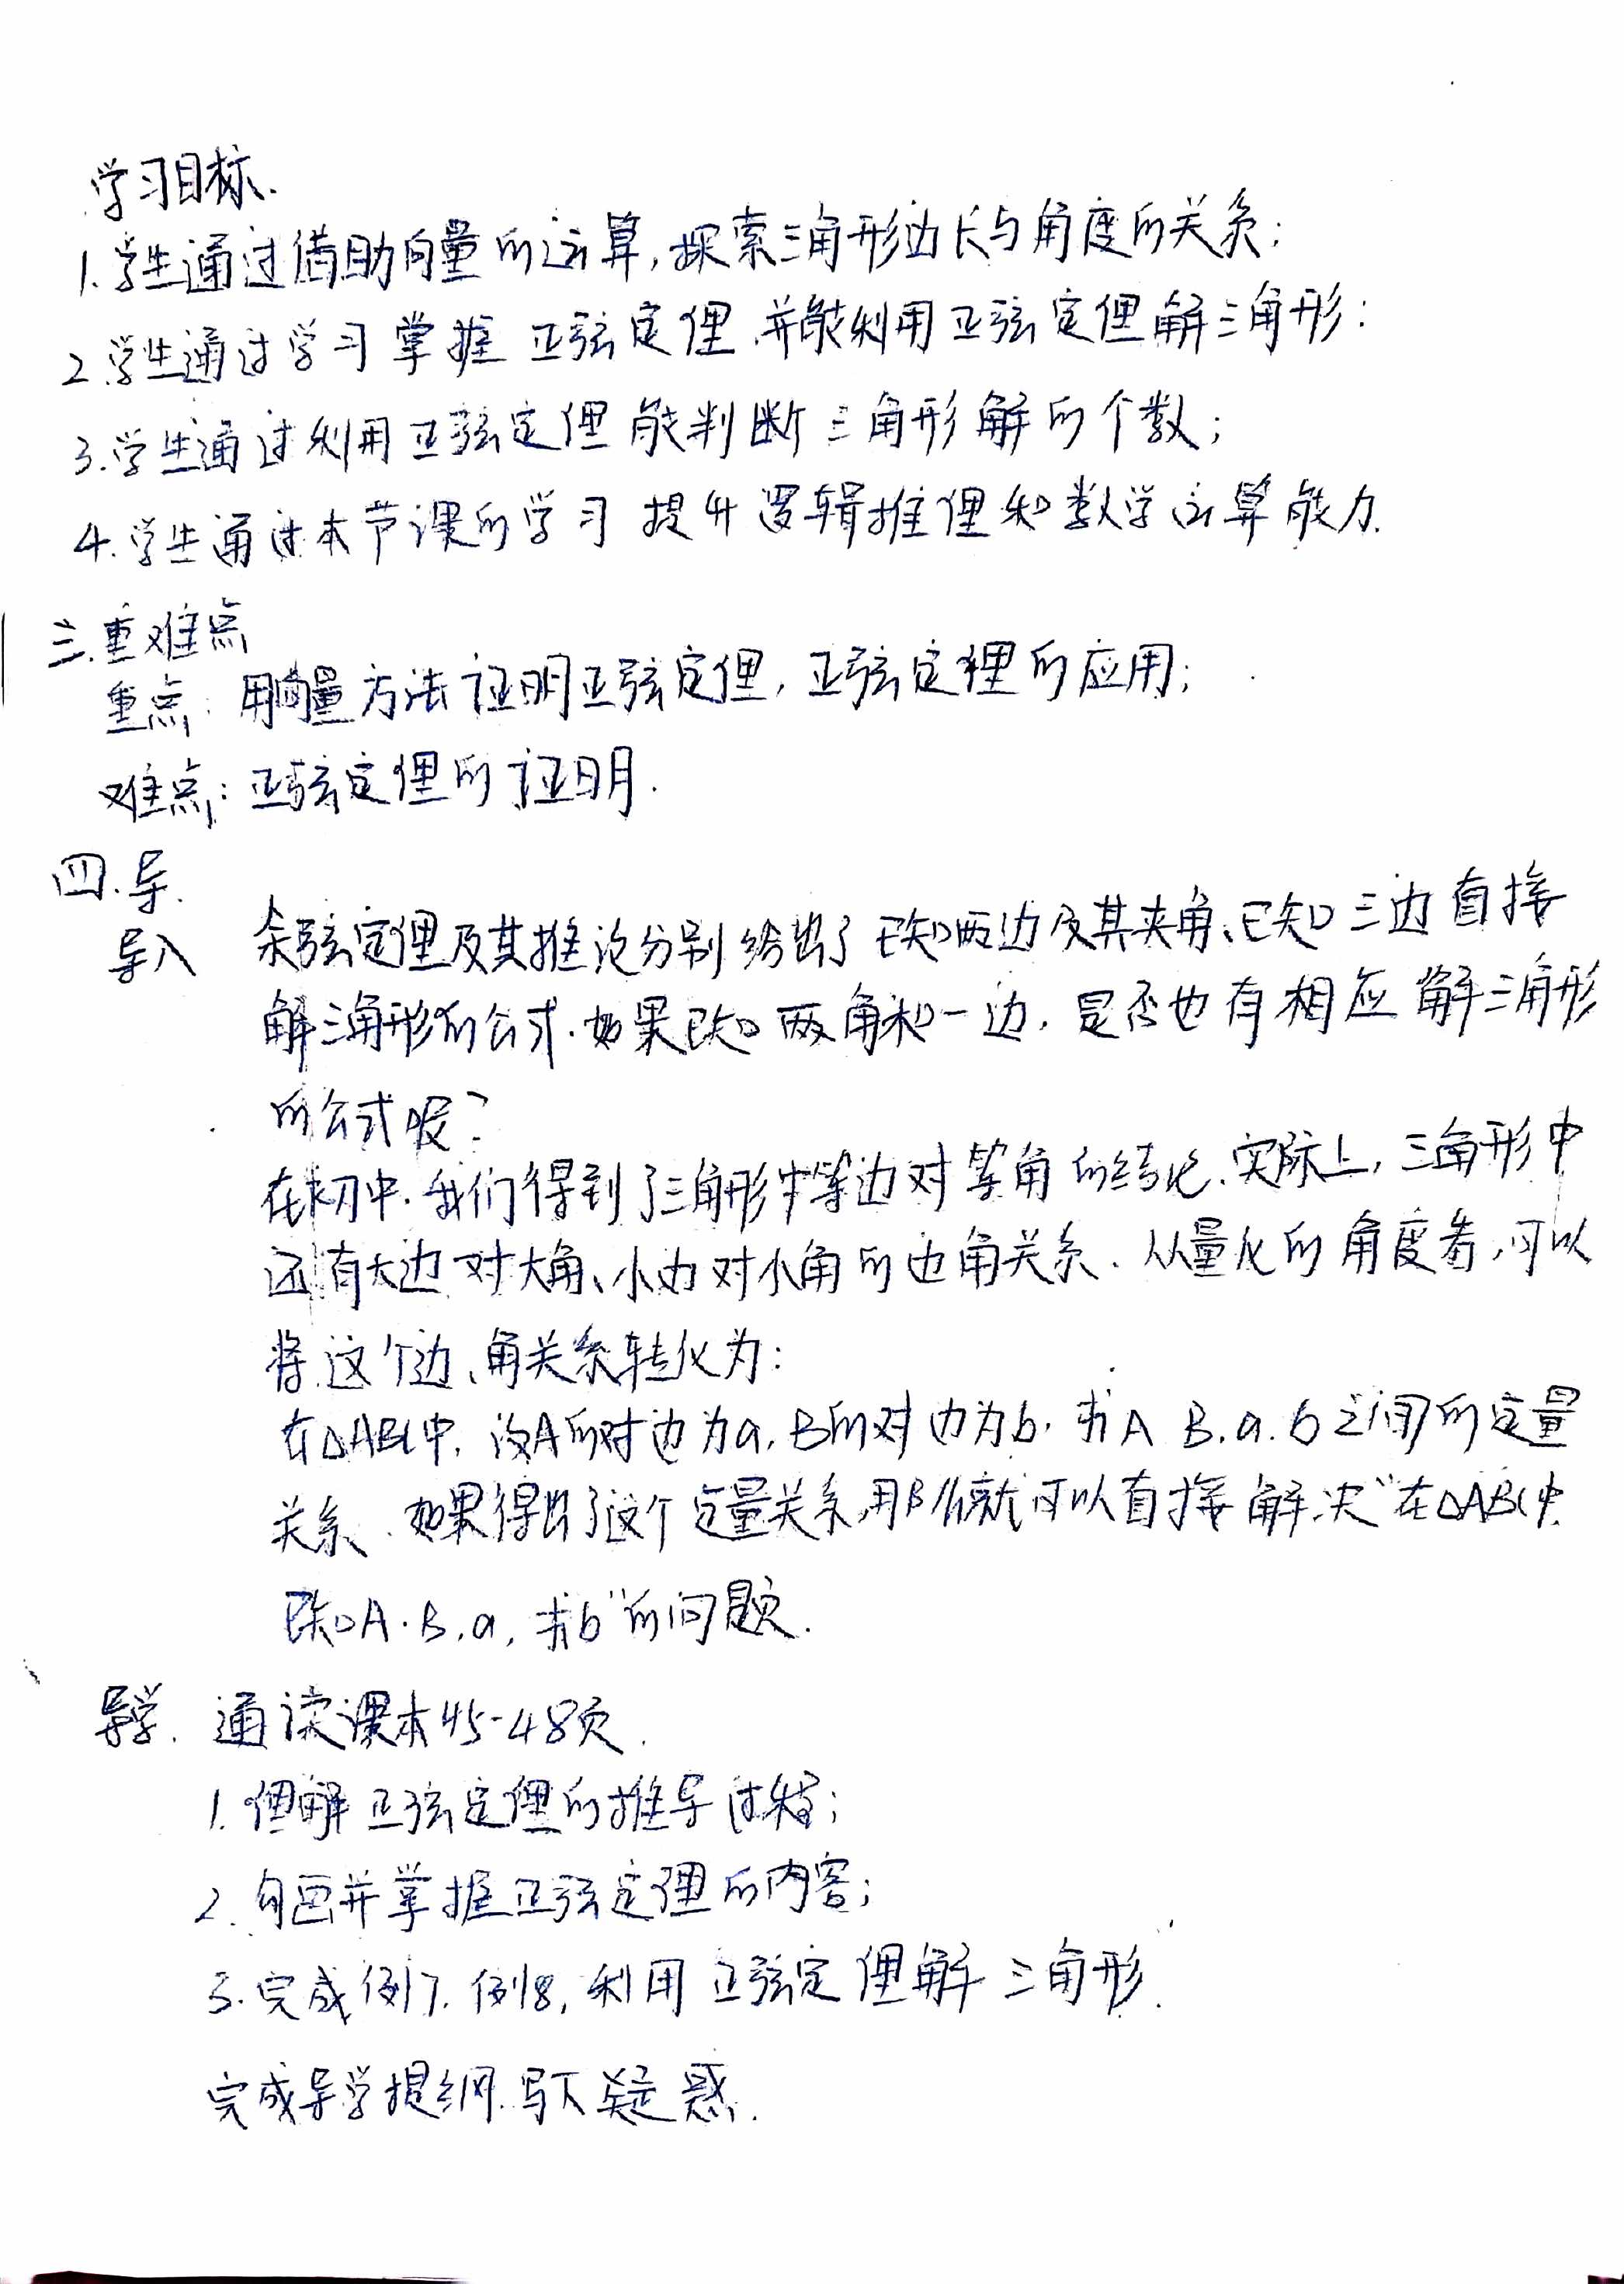 学习目标.
1.学生通过借助向量的运算,探索三角形边长与角度的关系;
2.学生通过学习掌握正弦定理.并能利用正弦定理解三角形:
3.学生通过利用正弦定理能判断三角形解的个数;
4.学生通过本节课的学习提升逻辑推理和数学运算能力.
三.重难点
重点:用向量方法证明正弦定理,正弦定理的应用;
难点:正弦定理的证明.
四.导.
导入 余弦定理及其推论分别给出了已知两边及其夹角、已知三边直接
解三角形的公式.如果已知两角和一边,是否也有相应解三角形
的公式呢?
在初中.我们得到了三角形中等边对等角的结论.实际上,三角形中
还有大边对大角、小边对小角的边角关系.从量化的角度看,可以
将这个边、角关系转化为:
在△ABC中,设A的对边为a,B的对边为b,求A B.a.b之间的定量
关系.如果得出了这个定量关系,那么就可以直接解决"在△ABC中
已知A.B.a,求b"的问题.
导学.通读课本45-48页.
1.理解正弦定理的推导过程;
2.勾画并掌握正弦定理的内容;
3.完成例7.例8,利用正弦定理解三角形.
完成导学提纲.写下疑惑.